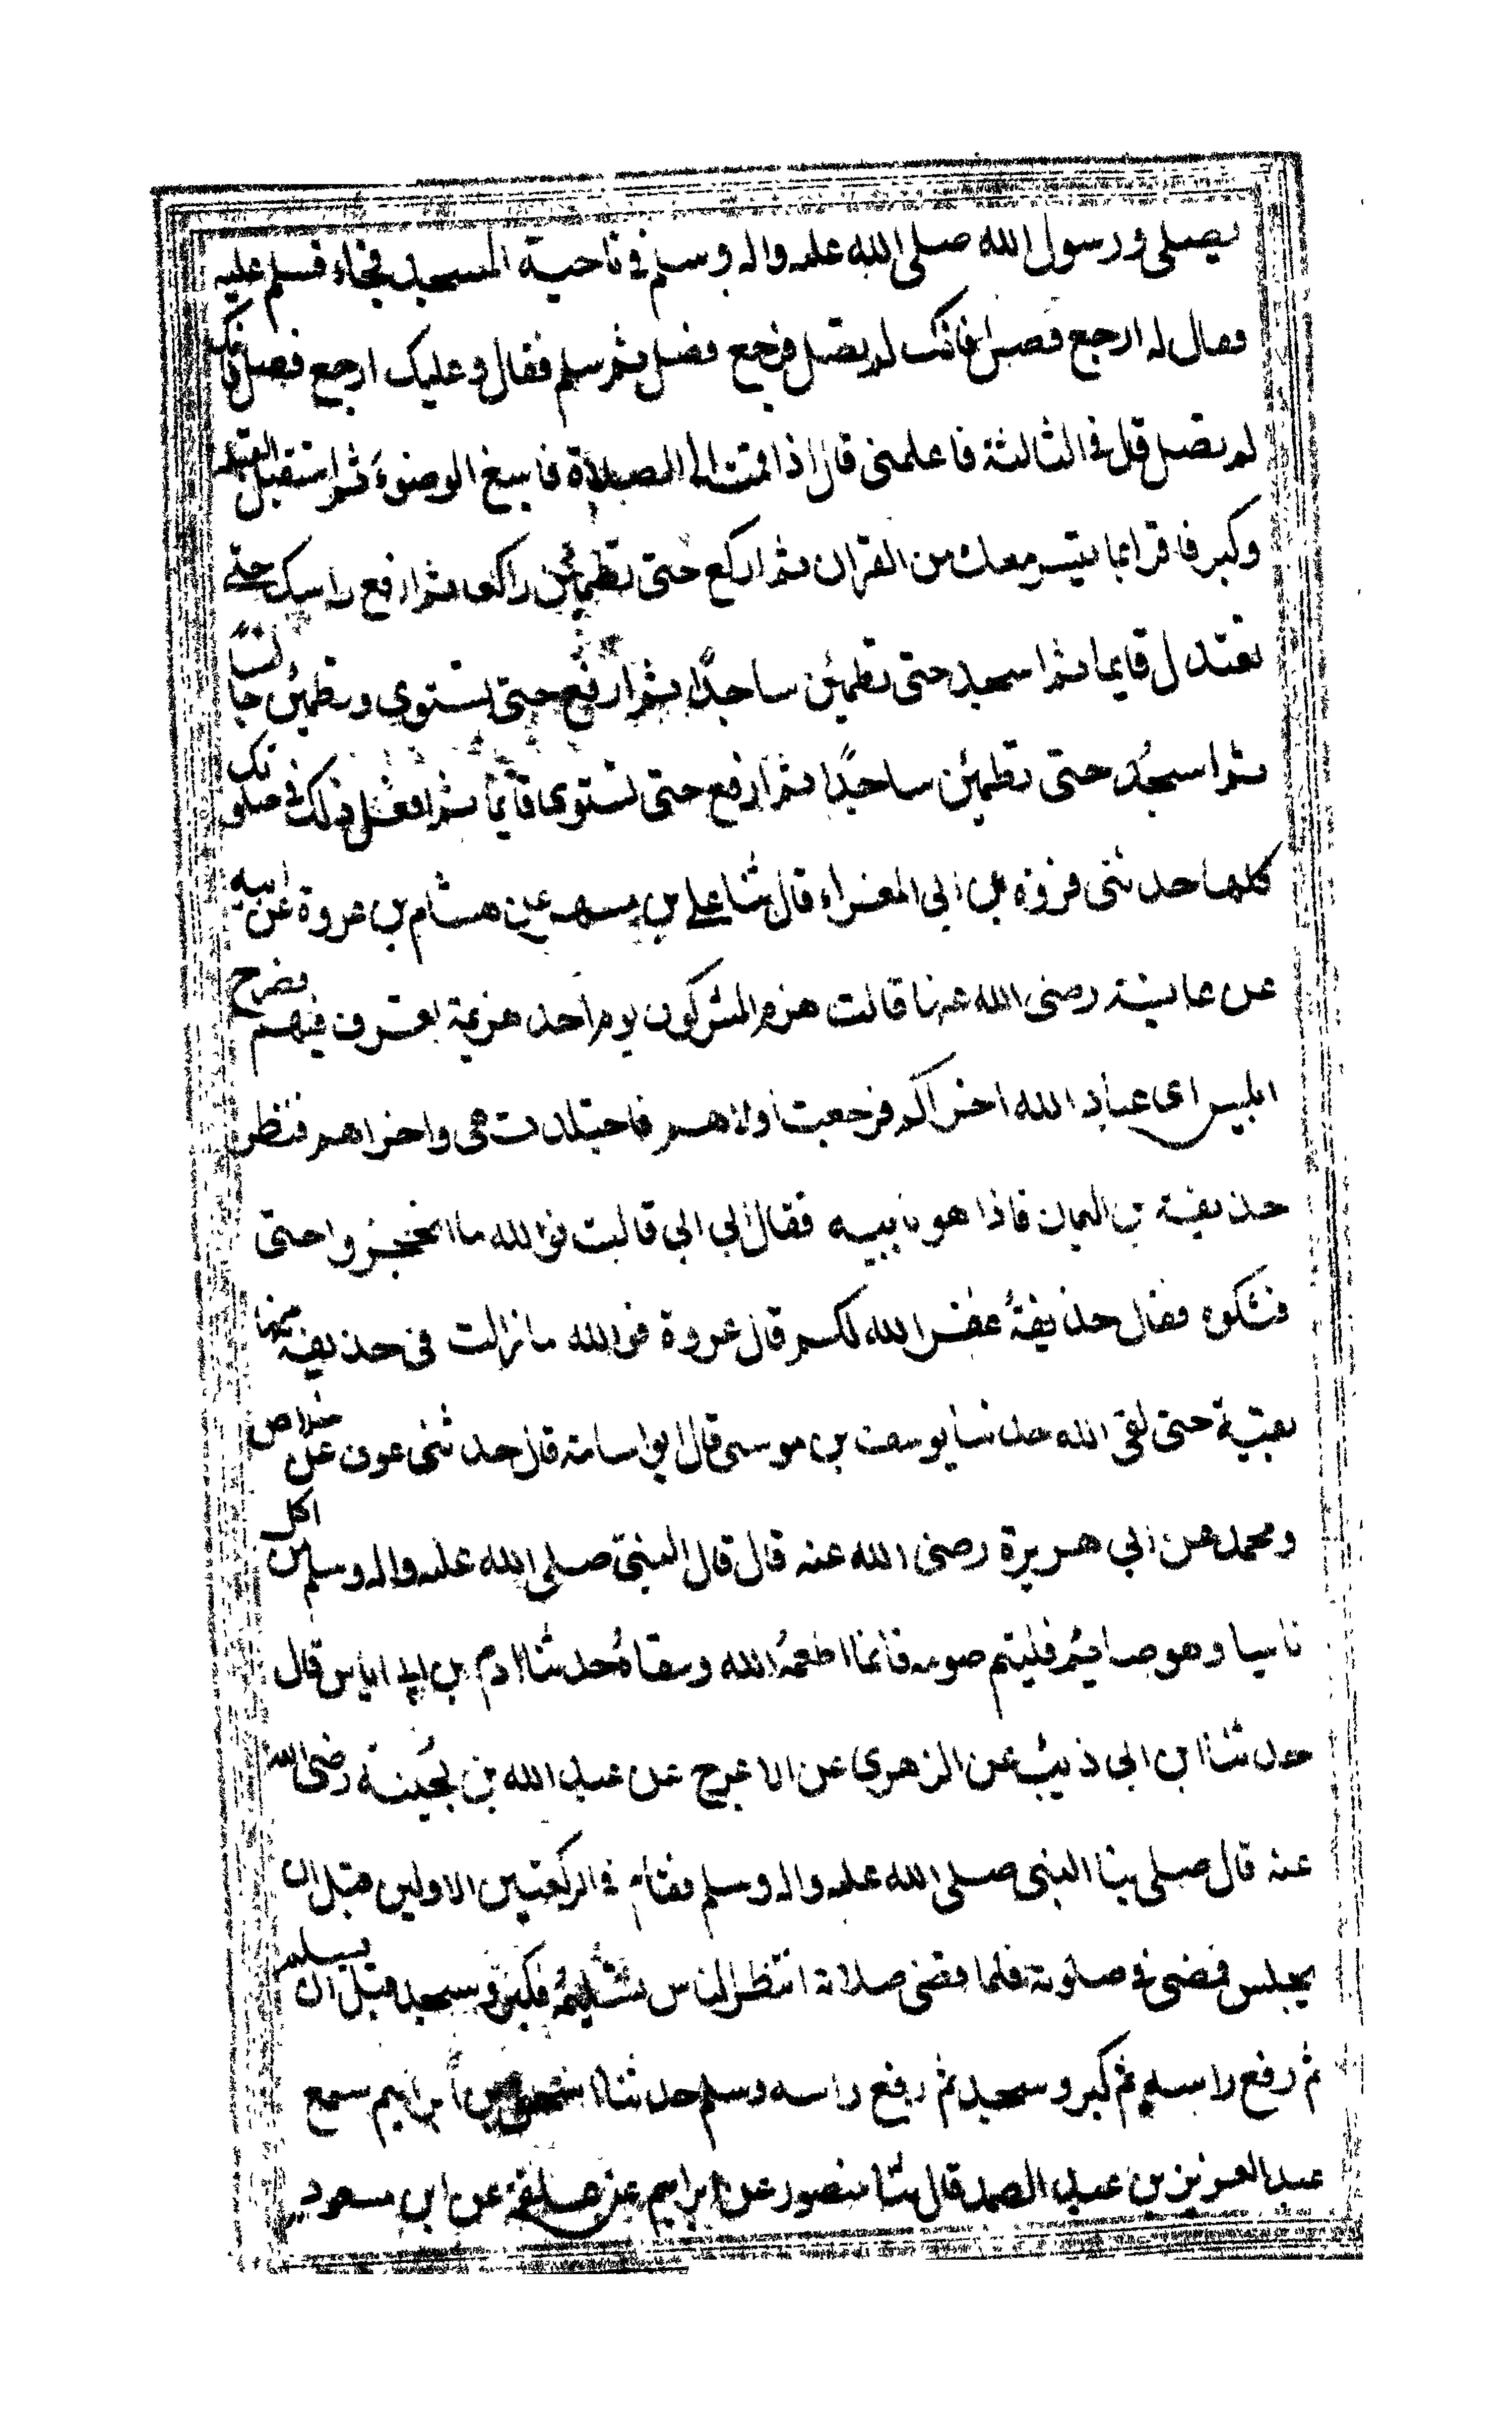 يصلى ورسول الله صلى الله عليه واله وسلم في ناحية المسجد فجاء فسلم عليه
فقال له ارجع فصل فانك لم تصل فرجع فصل ثم سلم فقال وعليك ارجع فصل فانك
لم تصل قال في الثالثة فاعلمنى قال اذا قمت الى الصلاة فاسبغ الوضوء ثم استقبل القبلة
وكبر فاقرا بما تيسر معك من القران ثم اركع حتى تطمئن راكعا ثم ارفع راسك حتى
تعتدل قايما ثم اسجد حتى تطمئن ساجدا ثم ارفع حتى تستوي وتطمئن جا لسا
ثم اسجد حتى تطمئن ساجدا ثم ارفع حتى تستوى قايما ثم افعل ذلك في صلوتك
كلها حدثنى فروة بن ابي المغراء قال ثنا علي بن مسهر عن هشام بن عروة عن ابيه
عن عايشة رضى الله عنها قالت هزم المشركون يوم احد هزيمة تعرف فيهم فصرخ
ابليس اى عباد الله اخراكم فرجعت اولاهم فاجتلدت هى واخراهم فنظر
حذيفة بن اليمان فاذا هو بابيه فقال ابي ابي قالت فوالله ما انحجزوا حتى
قتلوه فقال حذيفة غفر الله لكم قال عروة فوالله ما زالت في حذيفة منها
بقية حتى لقى الله حدثنا يوسف بن موسى قال ابو اسامة قال حدثنى عوف عن خلاص
ومحمد عن ابي هريرة رضى الله عنه قال قال النبي صلى الله عليه واله وسلم من اكل
ناسيا وهو صايم فليتم صومه فانما اطعمه الله وسقاه حدثنا ادم بن ابي اياس قال
حدثنا ابن ابي ذئب عن الزهري عن الاعرج عن عبد الله بن بحينة رضى الله
عنه قال صلى بنا النبى صلى الله عليه واله وسلم فقام في الركعتين الاوليين قبل ان
يجلس فمضى في صلوته فلما قضى صلاته انتظر الناس تسليمه فكبر وسجد قبل ان يسلم
ثم رفع راسه ثم كبر وسجد ثم رفع راسه وسلم حدثنا اسحق بن ابراهيم سمع
عبد العزيز بن عبد الصمد قال ثنا منصور عن ابراهيم عن علقمة عن ابن مسعود